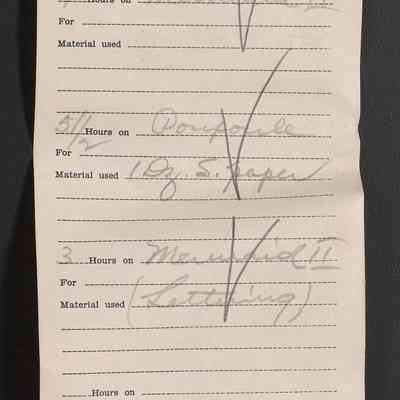 Hours on
For
Material used
5 1/2 Hours on
For
Material used 1 Dz. S. paper
3 Hours on Mermaid II
For
Material used (Lettering)
Hours on